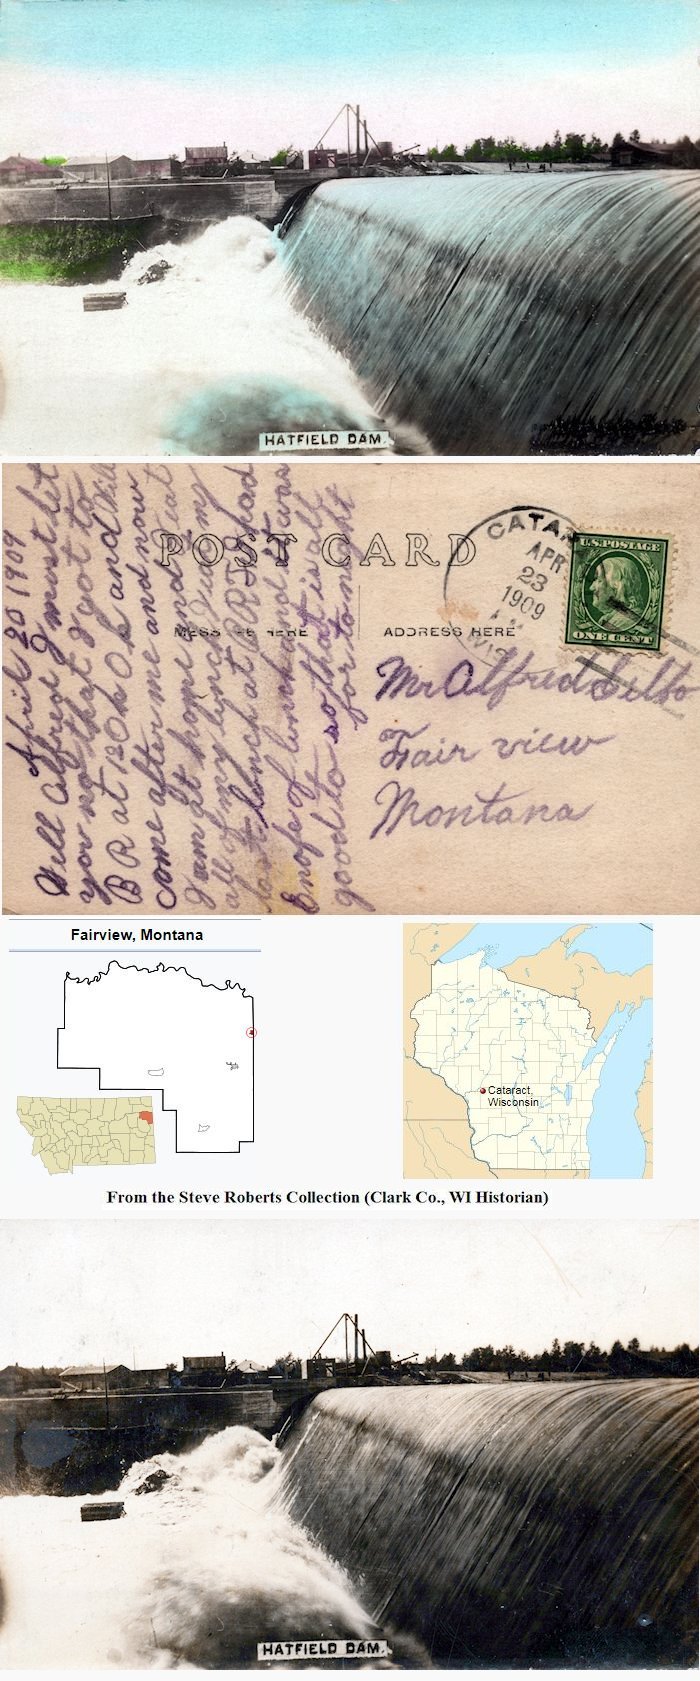 HATFIELD DAM.
April 20 1909
Well Alfred I must let
you no that I got to
B R at 12 O k O k and Will
come after me and now
I am at home and eat
all of my lunch I eat my
last lunch at B R I had
Enofe of lunch and it was
good to so that is all
for to night
POST CARD
MESS HERE
ADDRESS HERE
CATA
APR
23
1909
A M
WIS
U.S. POSTAGE
ONE CENT
Mr Alfred
Fair view
Montana
Fairview, Montana
Cataract,
Wisconsin
From the Steve Roberts Collection (Clark Co., WI Historian)
HATFIELD DAM.